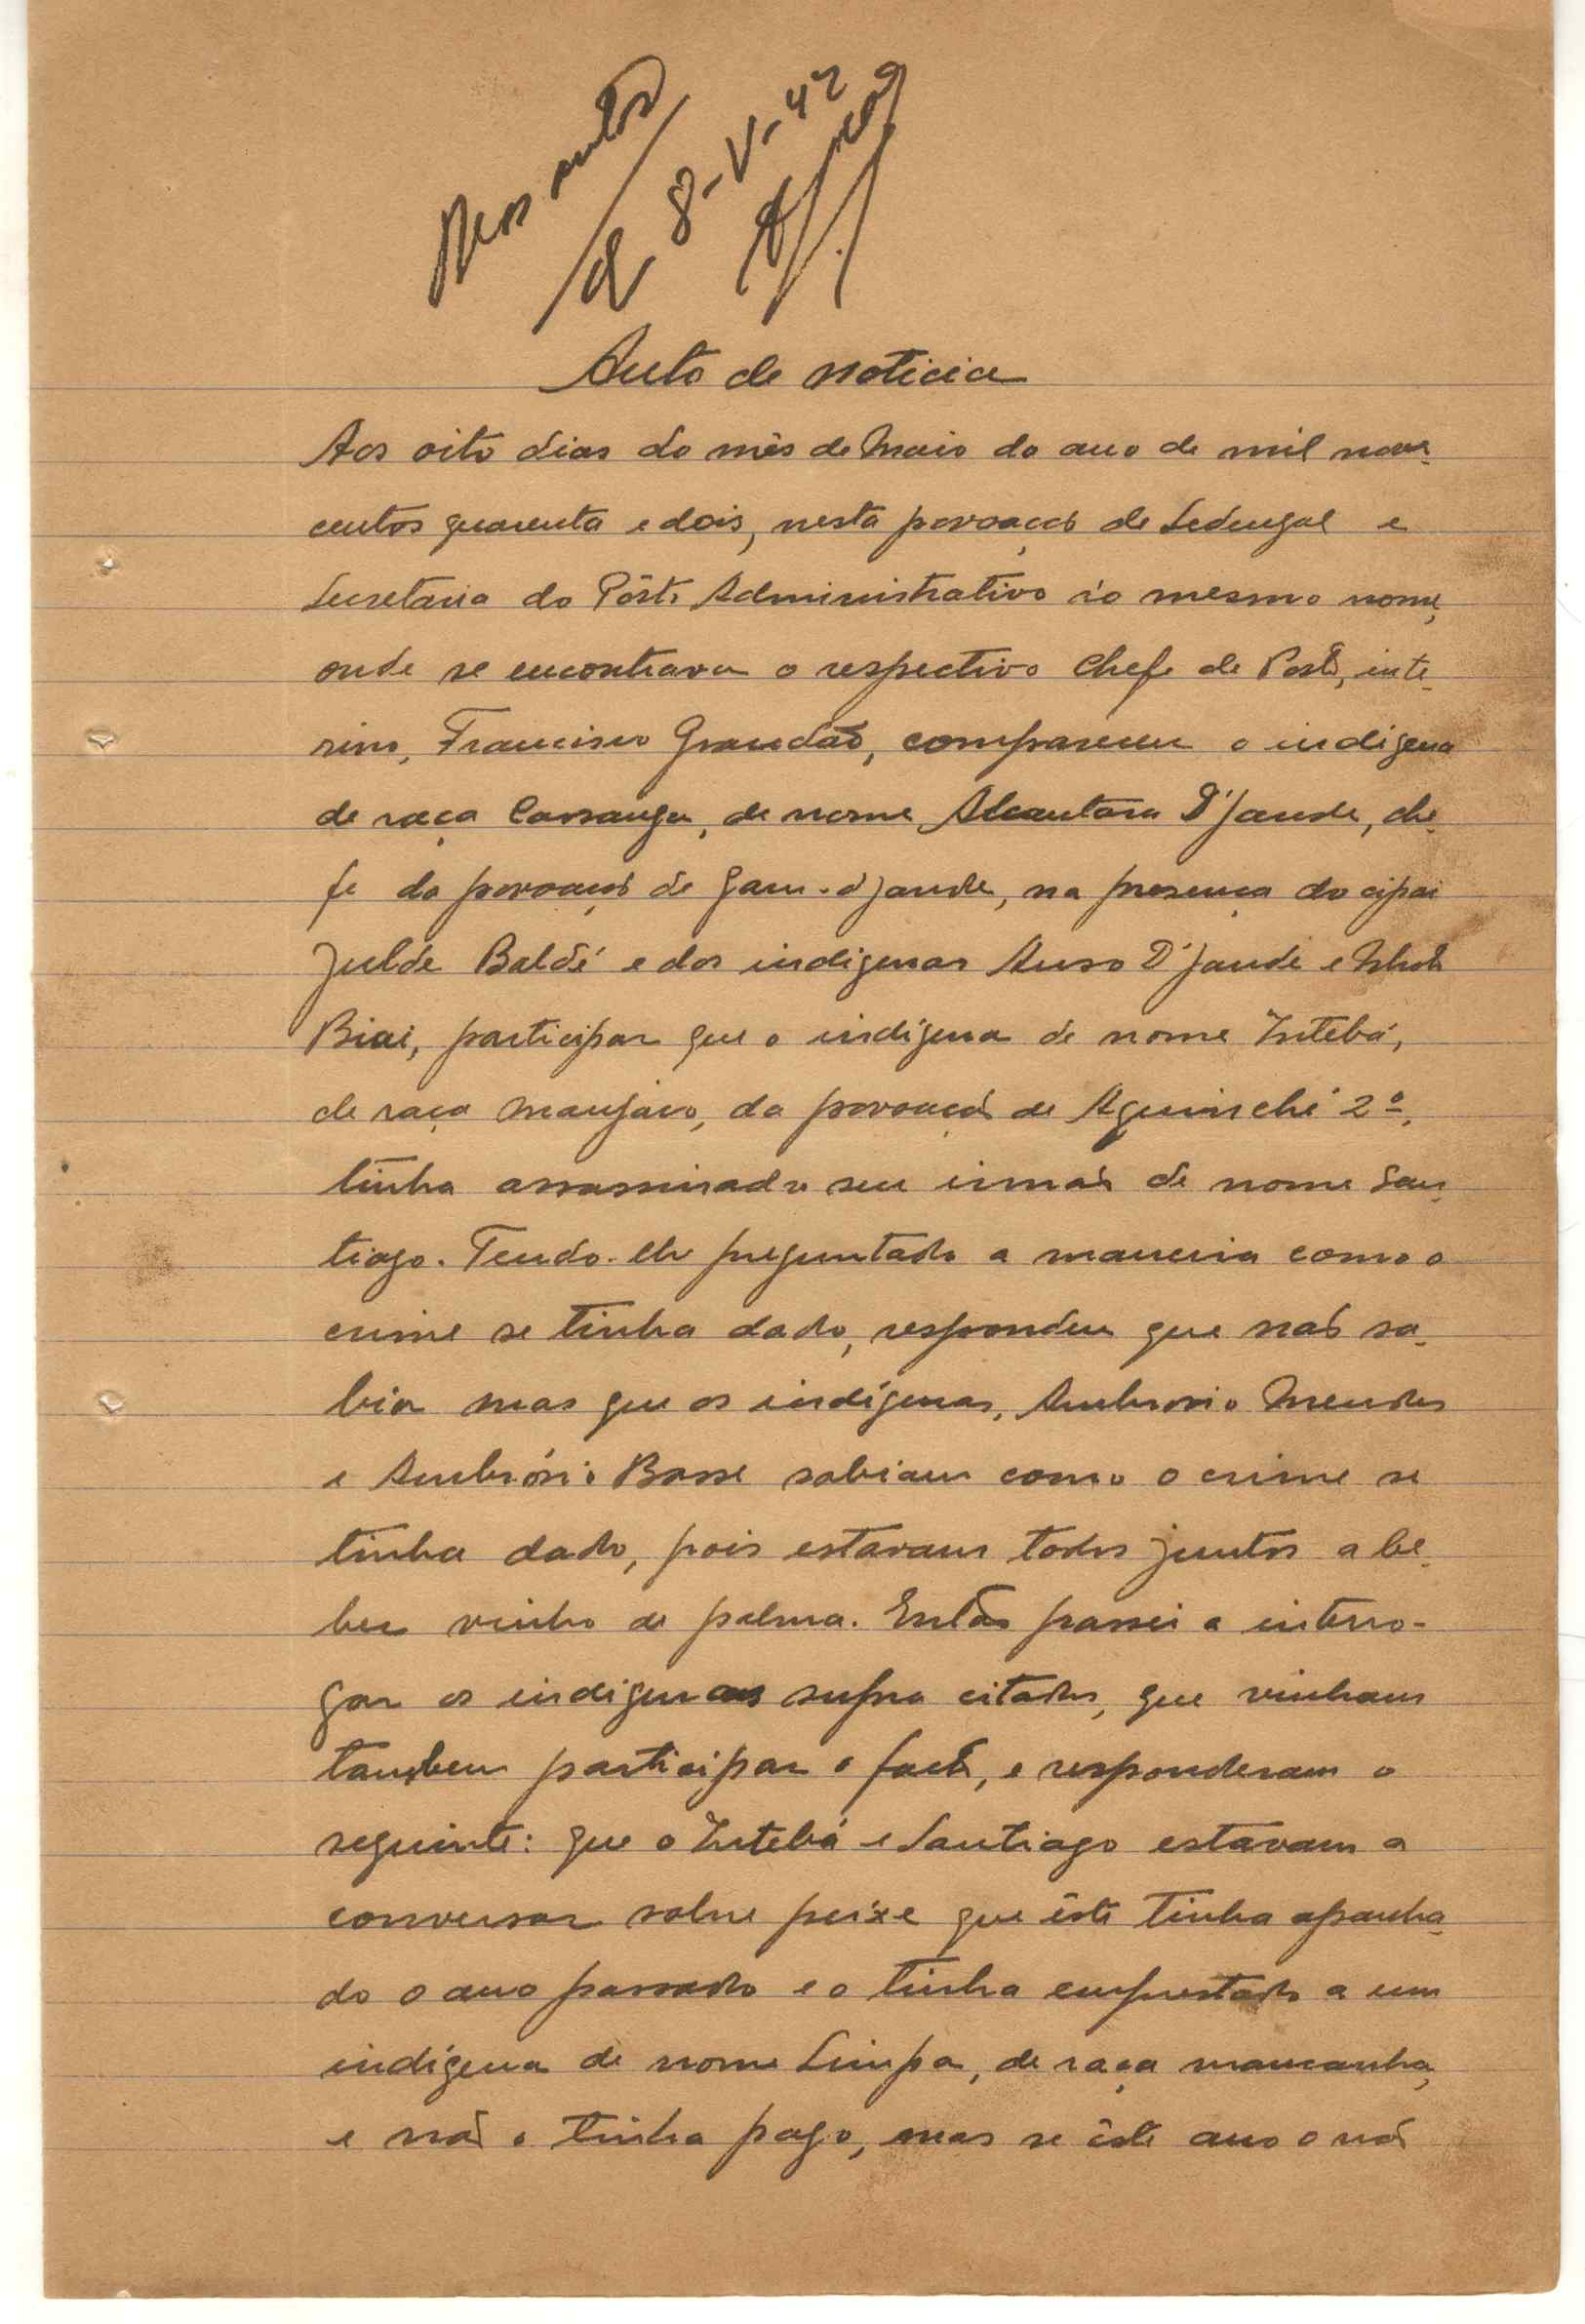 Nos autos
8-V-42
Auto de noticia
Aos oito dias do mês de Maio do ano de mil nove-
centos quarenta e dois, nesta povoação de Sedengal e
Secretaria do Pôsto Administrativo do mesmo nome,
onde se encontrava o respectivo Chefe de Posto, inte-
rino, Francisco Grandão, compareceu o indigena
de raça Cassanga, de nome Alcantara D'jande, che-
fe da povoação de Gam-djande, na presença do cipai
Juldé Baldé e dos indigenas Anso D'jande e
Biai, participar que o indígena de nome Intebá,
de raça manjaco, da povoação de Aguinché 2º,
tinha assassinado seu irmão de nome San-
tiago. Tendo-lhe preguntado a maneira como o
crime se tinha dado, respondeu que não sa-
bia mas que os indígenas, Ambrosio Mendes
e Ambrósio Basse sabiam como o crime se
tinha dado, pois estavam todos juntos a be-
ber vinho de palma. Então passei a interro-
gar os indigenas supra citados, que vinham
tambem participar o facto, e responderam o
seguinte: que o Intebá e Santiago estavam a
conversar sobre peixe que êste tinha apanha-
do o ano passado e o tinha emprestado a um
indígena de nome Limpa, de raça mancanha,
e não o tinha pago, mas se êste ano o não